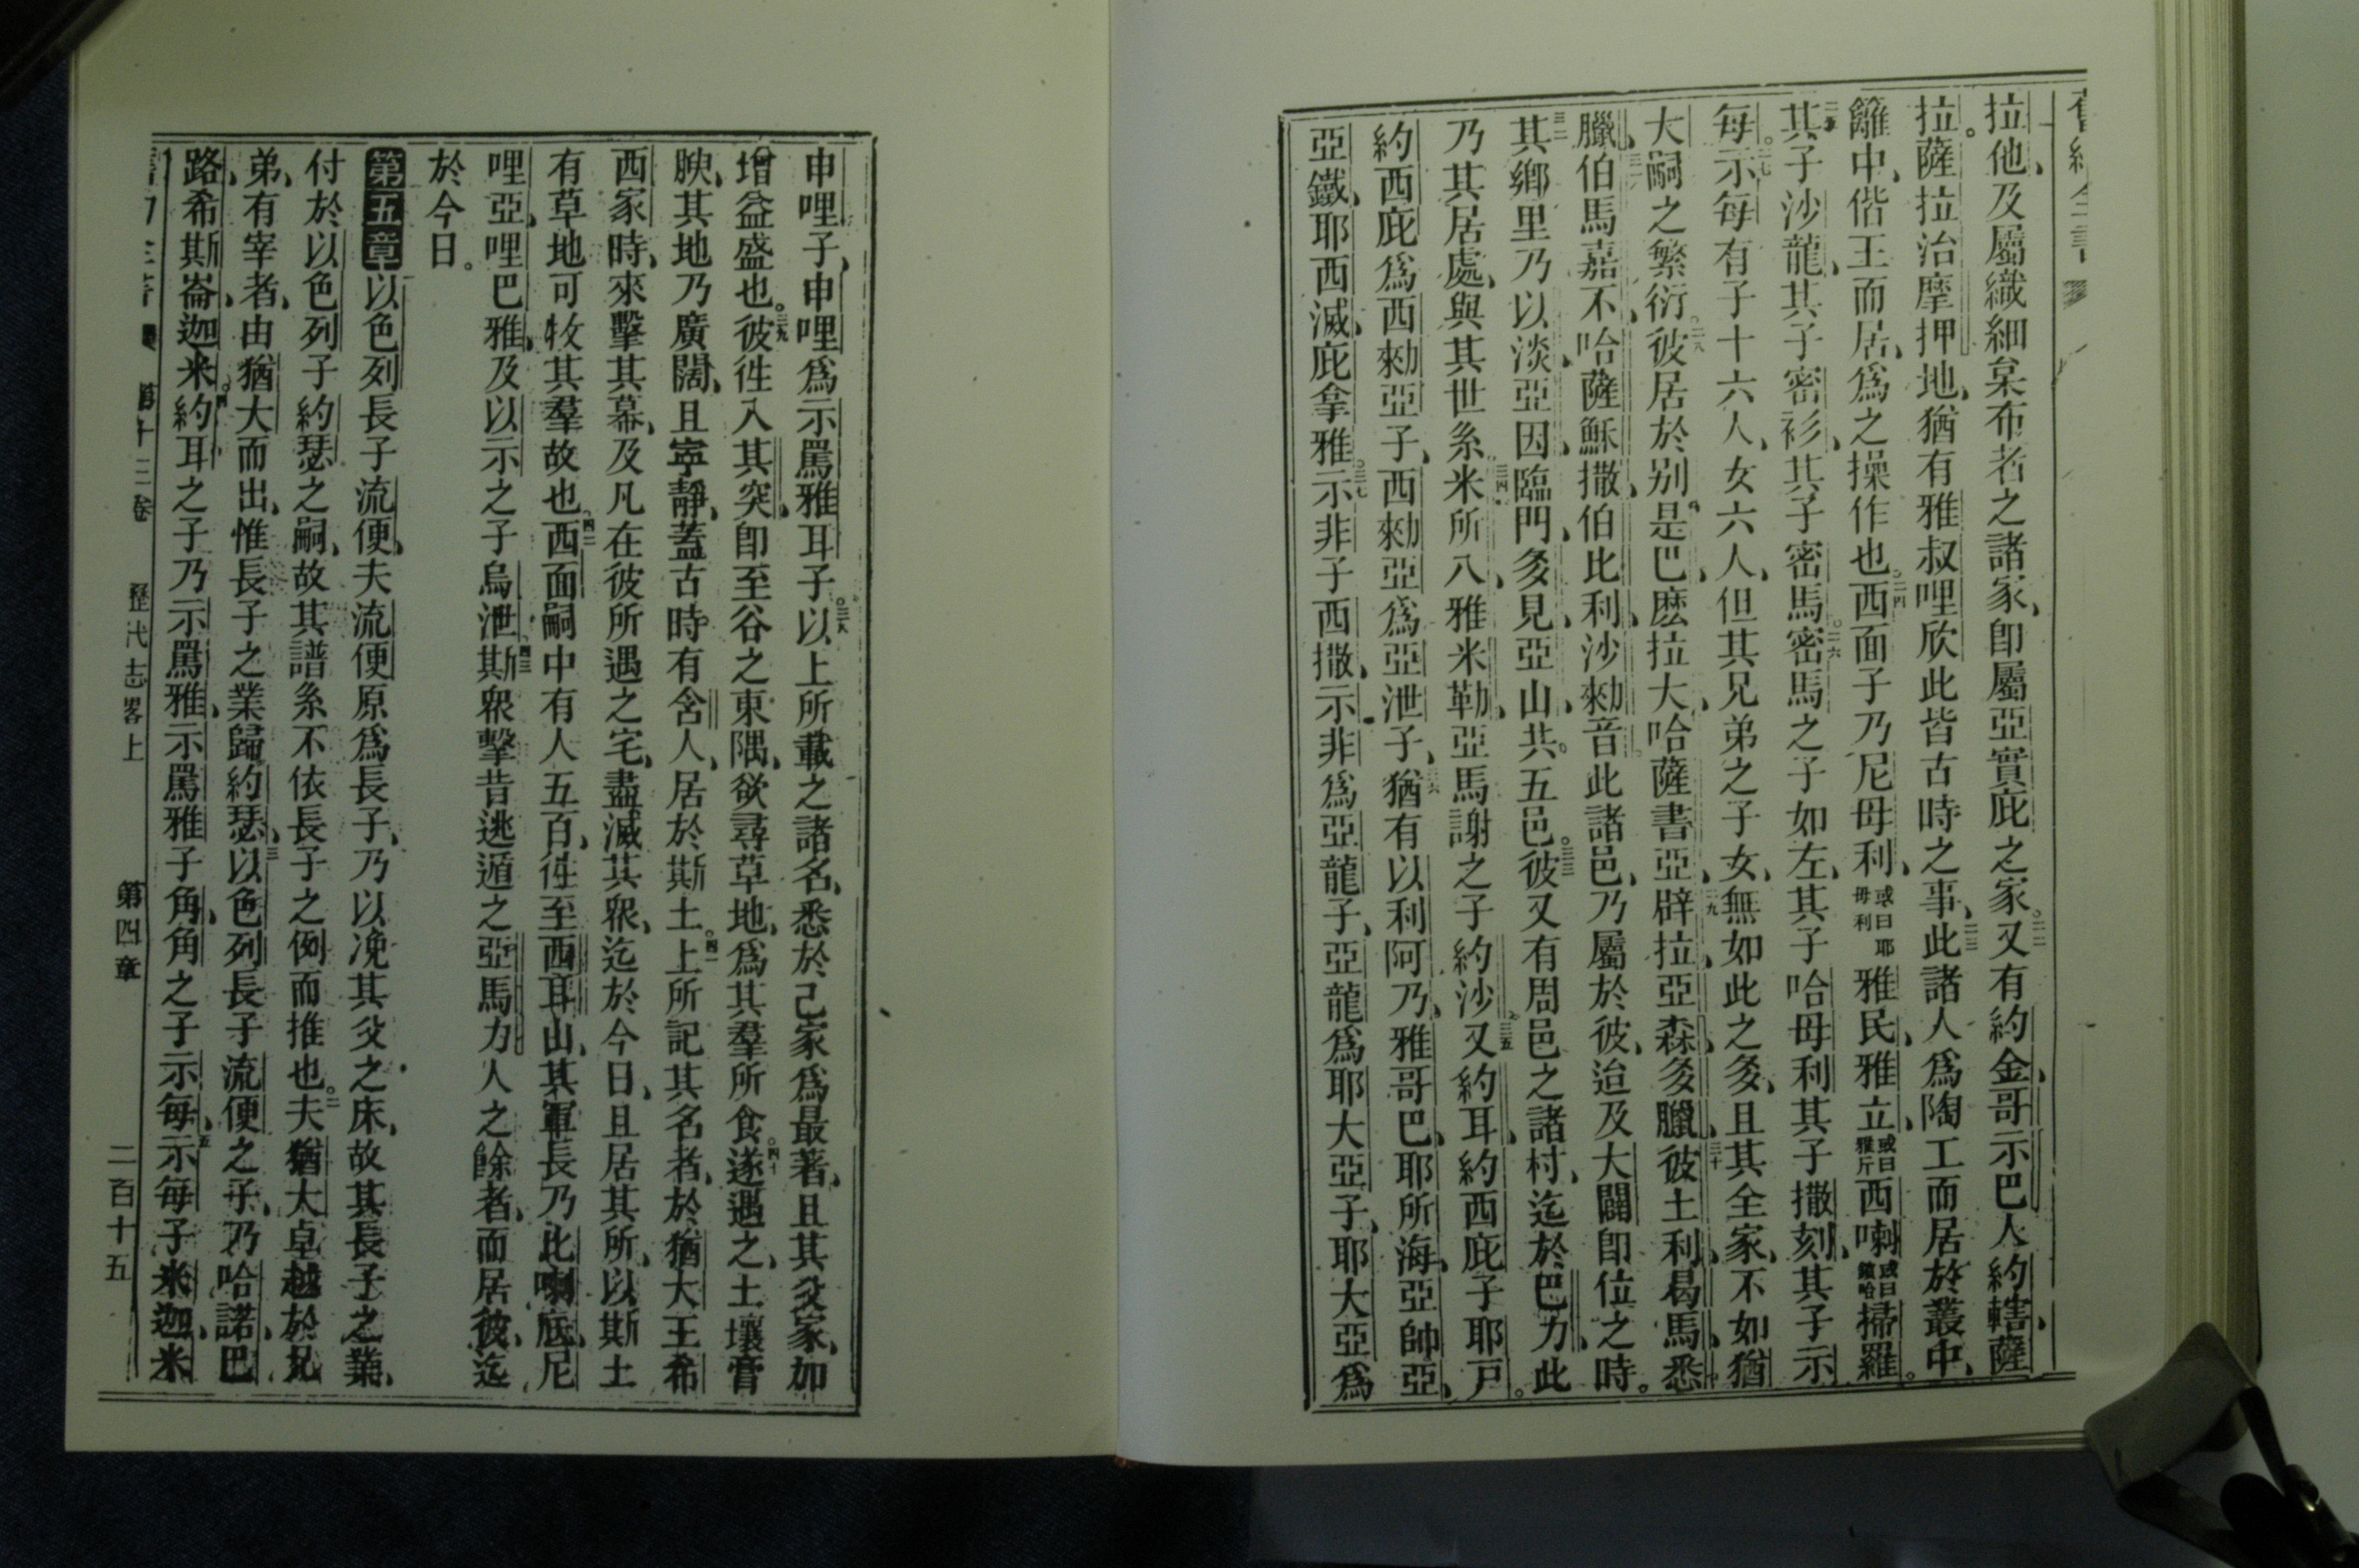 拉他及屬織細枲布者之諸家、卽屬亞實庇之家。二二又有約金、哥示巴人、約轄、薩
拉。拉薩拉治摩押地、猶有雅叔哩欣、此皆古時之事、二三此諸人爲陶工而居於叢中、
籬中、偕王而居、爲之操作也。二四西面子乃尼母利、或曰耶母利雅民、雅立、或曰雅斤西喇、或曰鎖哈掃羅。
二五其子沙龍、其子密衫、其子密馬。二六密馬之子如左、其子哈母利其子撒刻、其子示
每。二七示每有子十六人、女六人、但其兄弟之子女、無如此之多、且其全家、不如猶
大嗣之繁衍。二八彼居於别是巴、麽拉大、哈薩書亞、二九辟拉、亞森、多臘、三十彼土利、曷馬、悉
臘、三一伯馬嘉不、哈薩穌撒、伯比利、沙勑音。此諸邑、乃屬於彼、迨及大闢卽位之時。
三二其鄉里乃以淡、亞因、臨門、多見、亞山、共五邑。三三彼又有周邑之諸村、迄於巴力、此
乃其居處、與其世系。三四米所八、雅米勒、亞馬謝之子約沙。三五又約耳、約西庇子耶戸。
約西庇爲西勑亞子、西勑亞爲亞泄子、三六猶有以利阿乃、雅哥巴、耶所海、亞帥亞、
亞鐵、耶西滅、庇拿雅。三七示非子西撒、示非爲亞龍子、亞龍爲耶大亞子、耶大亞爲
申哩子、申哩爲示罵雅耳子。三八以上所載之諸名、悉於己家爲最著、且其父家、加
增益盛也。三九彼徃入其突、卽至谷之東隅、欲尋草地、爲其羣所食。四十遂遇之、土壤膏
腴、其地乃廣闊、且寧靜、蓋古時有含人、居於斯土。四一上所記其名者、於猶大王希
西家時、來擊其幕、及凡在彼所遇之宅、盡滅其衆、迄於今日、且居其所、以斯土
有草地可牧其羣故也。四二西面嗣中有人五百、徃至西耳山、其軍長乃比喇底、尼
哩亞、哩巴雅、及以示之子烏泄、四三斯衆擊昔逃遁之亞馬力人之餘者、而居彼、迄
於今日。
第五章以色列長子流便、夫流便原爲長子、乃以凂其父之床、故其長子之業、
付於以色列子約瑟之嗣、故其譜系不依長子之例而推也。二夫猶大卓越於兄
弟、有宰者、由猶大而出、惟長子之業歸約瑟、三以色列長子流便之子、乃哈諾、巴
路、希斯崙、迦米。四約耳之子乃示罵雅、示罵雅子角、角之子示每、五示每子米迦、米
第十三卷 歷代志畧上 第四章 二百十五